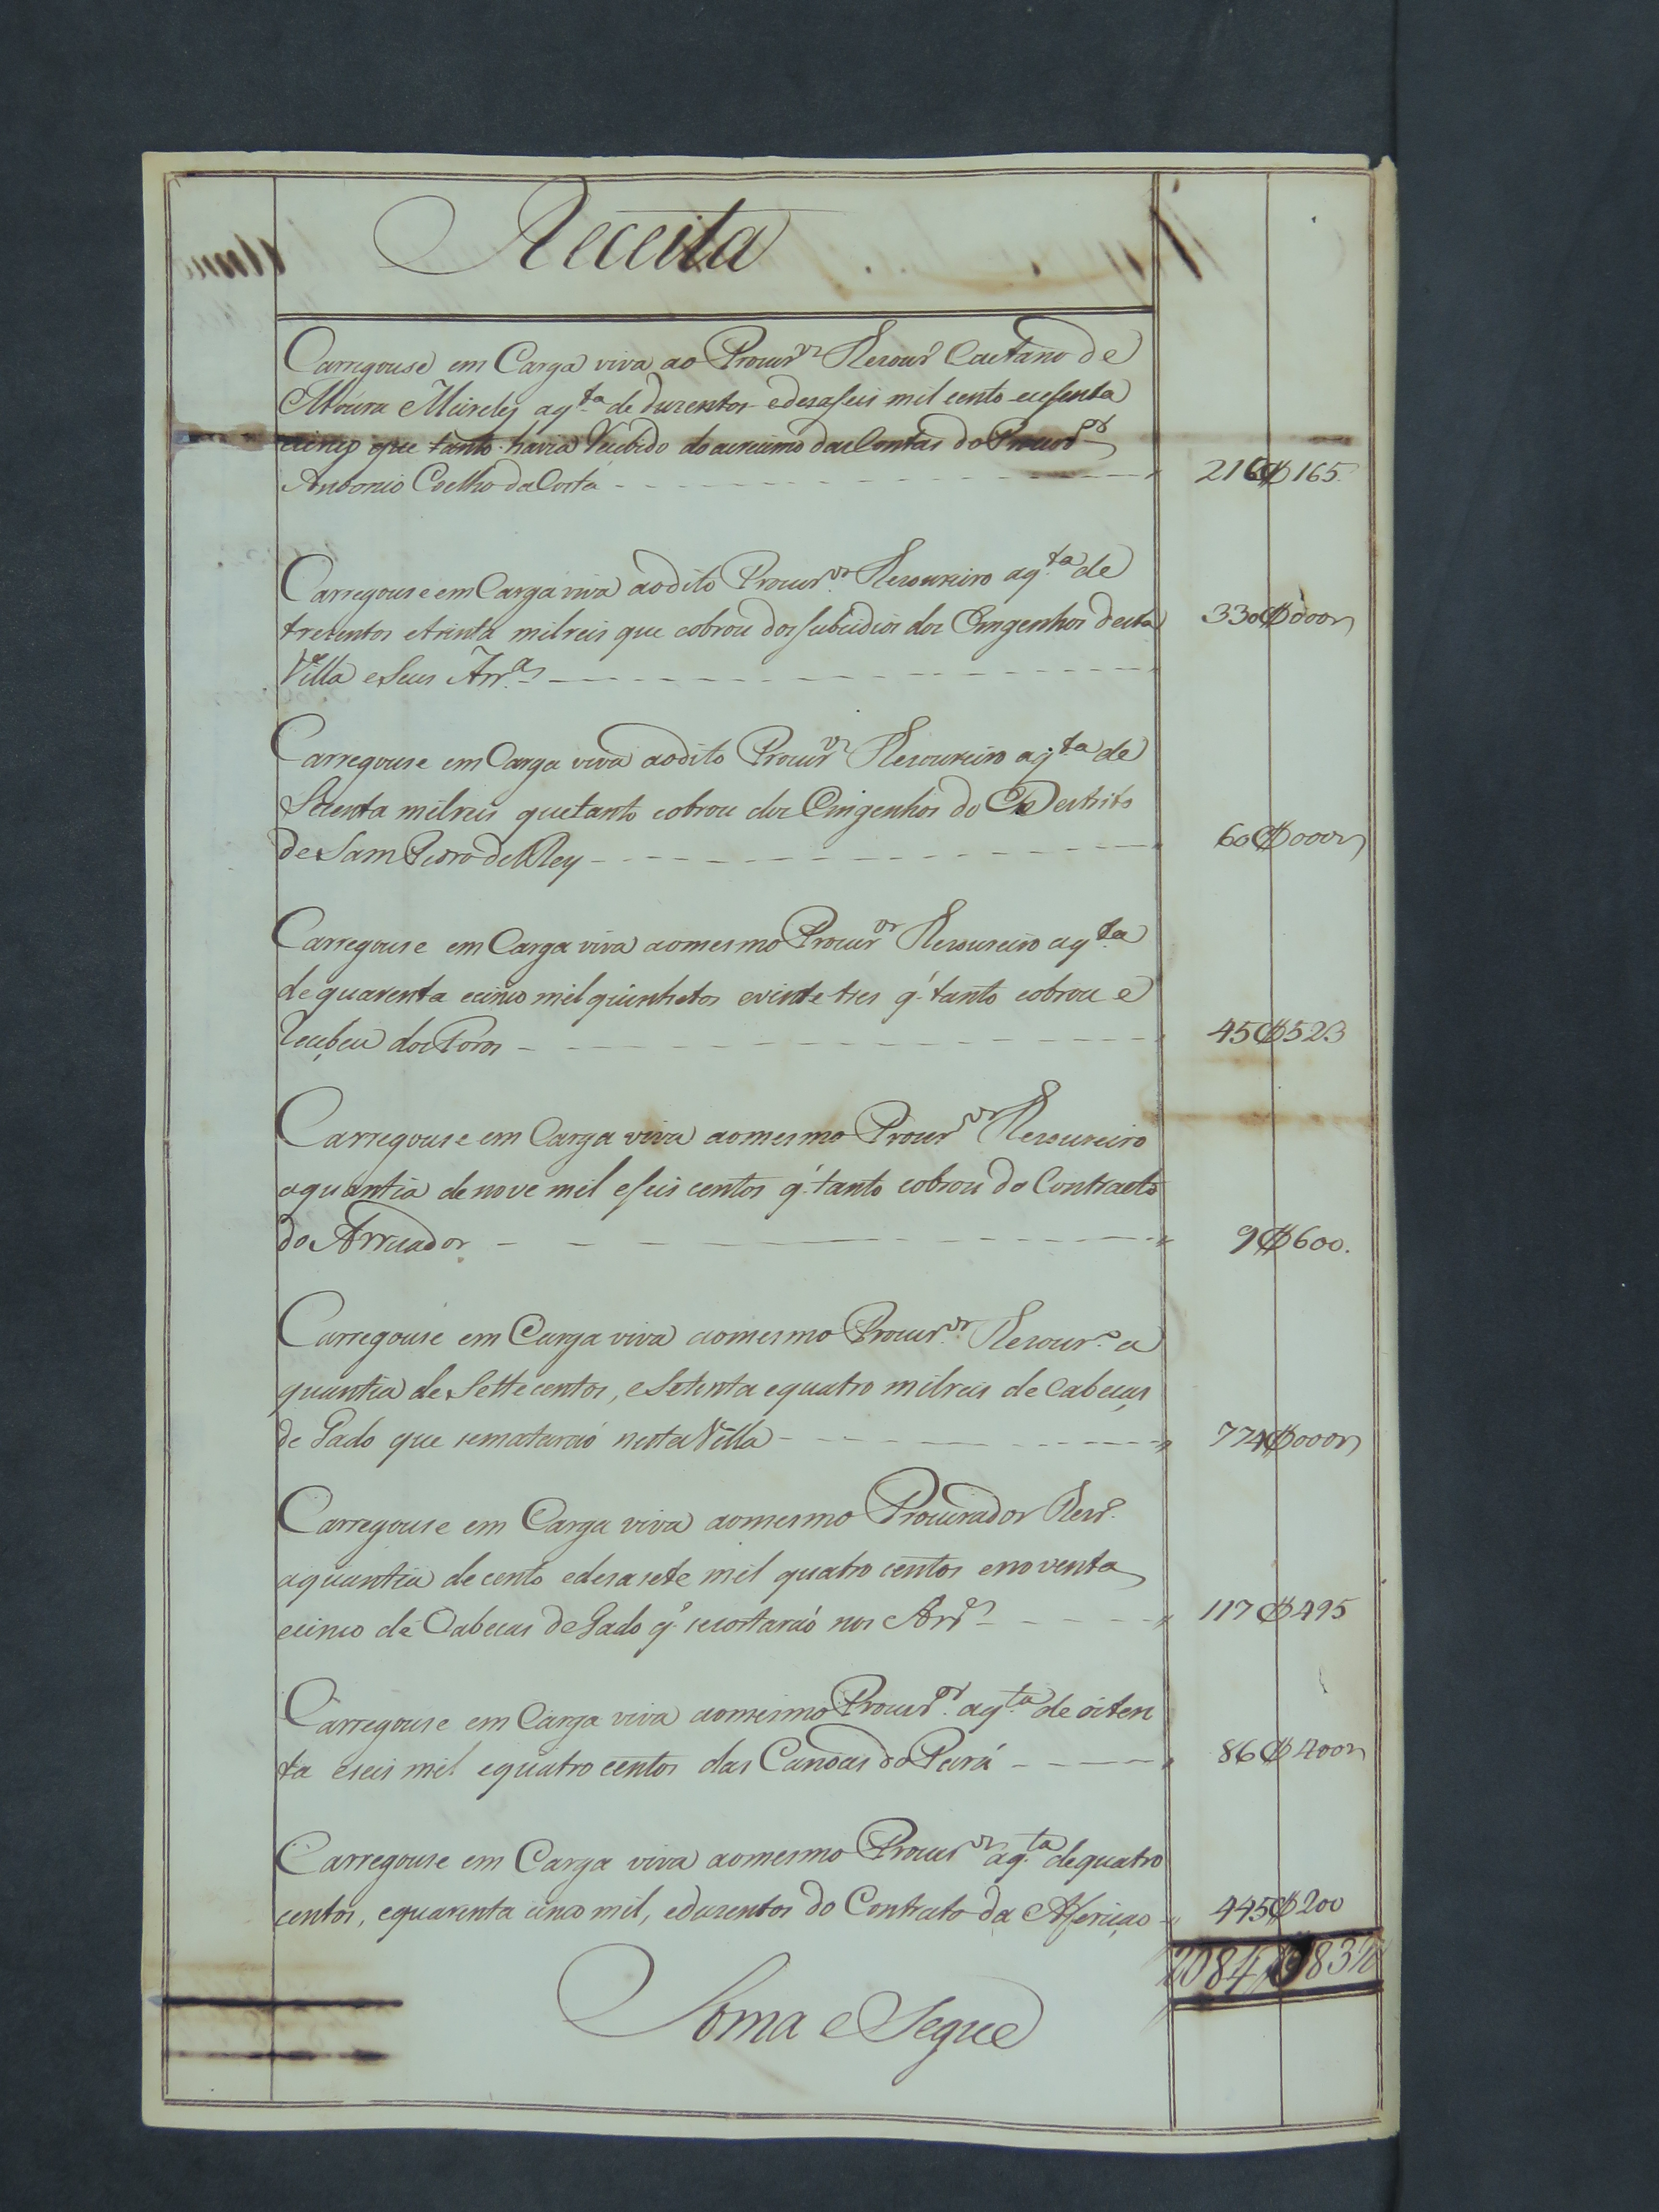 Receita
Carregouse em Carga viva ao Procur.or Thesour.o Caetano de
Moura Meireles aq.ta de duzentos edezaseis mil cento esesenta
ecinco que tanto havia Recebido do acrecimo das Contas do Procur.or
Antonio Coelho da Costa 216$165
Carregouse em Carga viva aodito Procur.or Thesoureiro aq.ta de
trezentos etrinta milreis que cobrou dos subcidios dos Emgenhos desta
Villa eseus Arr.es 330$000
Carregouse em Carga viva aodito Procur.or Thesoureiro aq.ta de
Secenta milreis quetanto cobrou dos Emgenhos do Destrito
de Sam Pedro delRey 60$000
Carregouse em Carga viva aomesmo Procur.or Thesoureiro aq.ta
de quarenta ecinco mil quinhetos evinte tres q. tanto cobrou e
Recebeu dos Foros 45$523
Carregouse em Carga viva aomesmo Procur.or Thesoureiro
aquantia de nove mil eseis centos q. tanto cobrou do Contracto
do Arruador 9$600
Carregouse em Carga viva aomesmo Procur.or Thesour.o a
quantia de Sette centos, eSetenta equatro milreis de Cabeças
de Gado que sematarão nesta Villa 774$000
Carregouse em Carga viva aomesmo Procurador Thes.o
aquantia de cento edezasete mil quatro centos enoventa
ecinco de Cabecas de Gado q. secortarão nos Arr.es 117$495
Carregouse em Carga viva aomesmo Procur.or aq.ta de oiten
ta eseis mil equatro centos das Canoas do Pará 86$400
Carregouse em Carga viva aomesmo Procur.or aq.ta de quatro
centos, equarenta cinco mil, eduzentos do Contrato da Aferiçao 445$200
2084$383
Soma e Segue